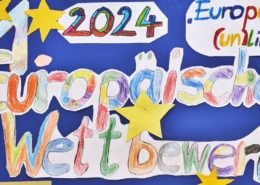 2024
„Europ
(un)li
Europäische
Wettbewer